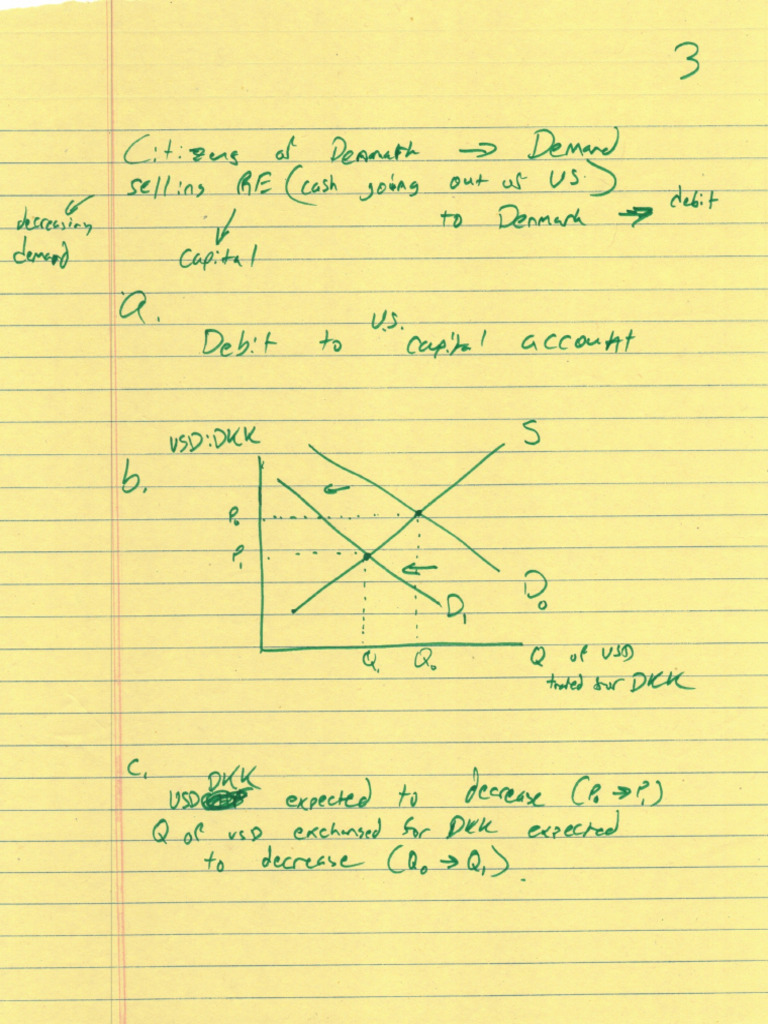 3
Citizens of Denmark → Demand
selling RE (cash going out of US)
to Denmark → debit
decreasing
demand
capital
a.
Debit to U.S. capital account
b.
USD:DKK
S
P₀
P₁
D₀
D₁
Q₁ Q₀
Q of USD
traded for DKK
c.
USD DKK expected to decrease (P₀ → P₁)
Q of USD exchanged for DKK expected
to decrease (Q₀ → Q₁).